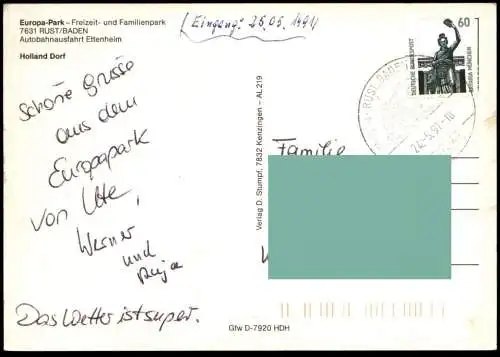 Europa-Park – Freizeit- und Familienpark
7631 RUST/BADEN
Autobahnausfahrt Ettenheim
Holland Dorf
(Eingang: 25.05.1991)
60
DEUTSCHE BUNDESPOST
BAVARIA MÜNCHEN
Schöne Grüsse
aus dem
Europapark
von Ute,
Werner
und
Das Wetter ist super.
Verlag D. Stumpf, 7832 Kenzingen – AL 219
Familie
Gfw D-7920 HDH